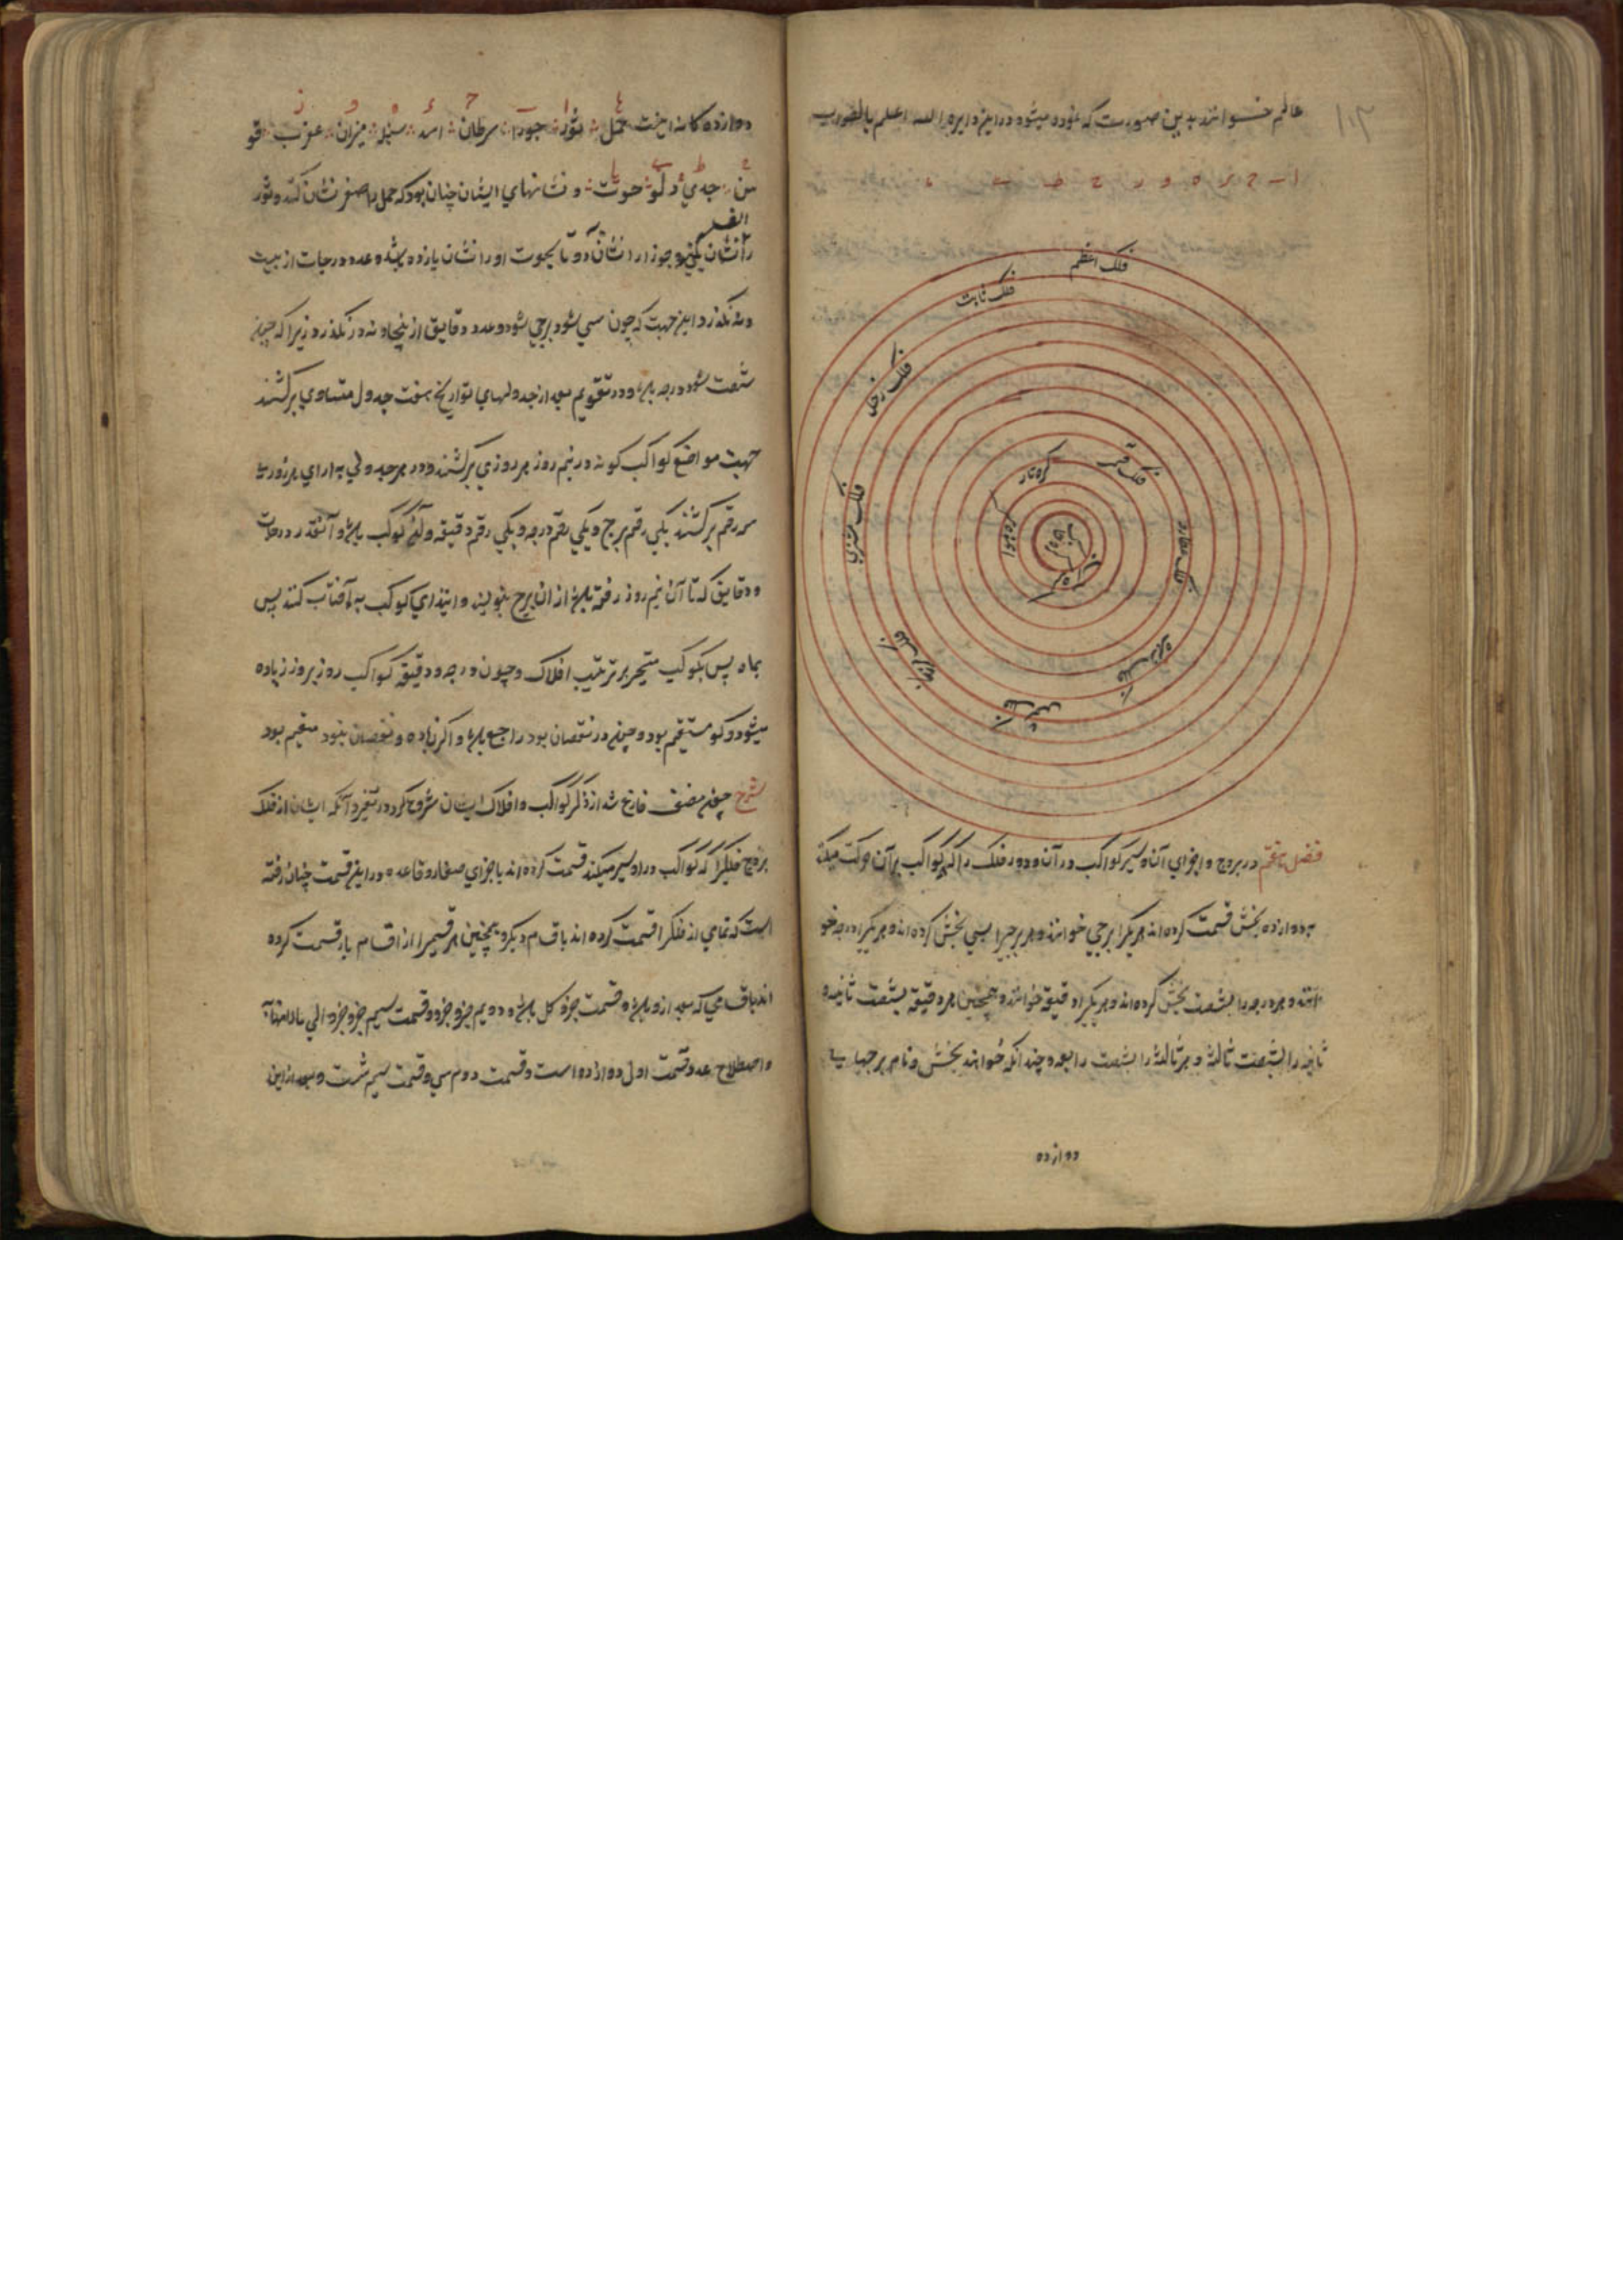 عالم خوانند بدین صورت که نموده میشود دراین دایره والله اعلم بالصواب
۱۰۲
ا ب ج د ه و ز ح ط ی
فلک اعظم
فلک ثابت
فلک زحل
فلک مشتری
فلک مریخ
فلک شمس
فلک زهره
فلک عطارد
فلک قمر
کره نار
کره هوا
کره
فصل پنجم در بروج و اجزای آن و سیر کواکب در آن و دور فلک را که کواکب بر آن حرکت میکنند
به دوازده بخش قسمت کرده اند هر یکرا برجی خوانند و هر برجیرا بسی بخش کرده اند و هر یکرا درجه خو
انند و هر درجه را بشصت بخش کرده اند و هر یکیرا دقیقه خوانند و همچنین هر دقیقه بشصت ثانیه و
ثانیه را بشصت ثالثه و هر ثالثه را بشصت رابعه و چندانکه خواهند بخش و نام برجها
دوازده
دوازده کانه اینست حمل ثور جوزا سرطان اسد سنبله میزان عقرب قو
س جدی دلو حوت و نشانهای ایشان چنان بود که حمل را صفر نشان کنند و ثور
الف
را نشان یکی و جوزا را نشان دو تا بحوت او را نشان یازده باشد و عدد درجات از بیست
و نه نگذرد این جهت که چون سی شود برجی شود و عدد دقایق از پنجاه و نه در نگذرد زیرا که چون
شصت شود درجه باشد و در تقویم بعد از جدولهای تواریخ هفت جدول متساوی برکشند
جهت مواضع کواکب کونه در نیم روز هر روزی برکشند و در هر جدولی به ازای هر روزی
سه رقم برکشند یکی رقم برج و یکی رقم درجه و یکی رقم دقیقه و آنکه کوکب باشد و آنقدر درجات
و دقایق که تا آن نیم روز رفته باشد از آن برج بنویسند و ابتدای کوکب به آفتاب کنند پس
بماه پس بکوکب متحیر بر ترتیب افلاک و چون درجه و دقیقه کواکب روز بروز زیاده
میشود کو مستقیم بود و چون در نقصان بود راجع باشد و اگر زیاده و نقصان نبود مقیم بود
شرح چون مصنف فارغ شد از ذکر کواکب و افلاک ایشان شروع کرد در تقریر آنکه ایشان از فلک
بروج فلکیرا که کواکب در او سیر میکنند قسمت کرده اند با جزای صغار و قاعده در این قسمت چنان رفته
است که تمامی از فلکرا قسمت کرده اند باقسام دیگر و همچنین هر قسمیرا از اقسام باز قسمت کرده
اند باقسامی که بعد از و باشد و قسمت جزو کل باشد و دویم جزو جزو و قسمت سیم جزو جزو جزو الی ما لانهایه
و اصطلاح عدد قسمت اول دوازده است و قسمت دوم سی و قسمت سیم شصت و بعد از این